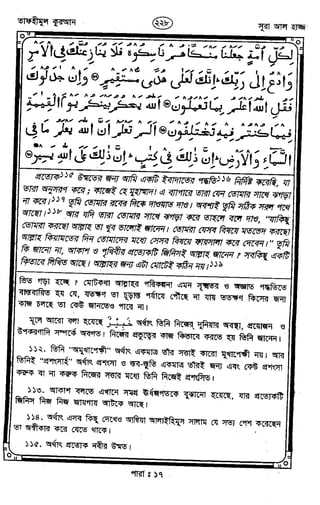 তাফহীমুল কুরআন ২২৮ সূরা আল হাজ্জ
لِكُلِّ أُمَّةٍ جَعَلْنَا مَنْسَكًا هُمْ نَاسِكُوهُ فَلَا يُنَازِعُنَّكَ فِي الْأَمْرِ
وَادْعُ إِلَىٰ رَبِّكَ إِنَّكَ لَعَلَىٰ هُدًى مُسْتَقِيمٍ وَإِنْ جَادَلُوكَ
فَقُلِ اللَّهُ أَعْلَمُ بِمَا تَعْمَلُونَ اللَّهُ يَحْكُمُ بَيْنَكُمْ يَوْمَ الْقِيَامَةِ
فِيمَا كُنْتُمْ فِيهِ تَخْتَلِفُونَ أَلَمْ تَعْلَمْ أَنَّ اللَّهَ يَعْلَمُ مَا فِي
السَّمَاءِ وَالْأَرْضِ إِنَّ ذَٰلِكَ فِي كِتَابٍ إِنَّ ذَٰلِكَ عَلَى اللَّهِ يَسِيرٌ
প্রত্যেক১১৫ উম্মতের জন্য আমি একটি ইবাদাতের পদ্ধতি১১৬ নির্দিষ্ট করেছি, যা
তারা অনুসরণ করে; কাজেই হে মুহাম্মাদ! এ ব্যাপারে তারা যেন তোমার সাথে ঝগড়া
না করে।১১৭ তুমি তোমার রবের দিকে দাওয়াত দাও। অবশ্যই তুমি সঠিক সরল পথে
আছো।১১৮ আর যদি তারা তোমার সাথে ঝগড়া করে তাহলে বলে দাও, "যাকিছু
তোমরা করছো আল্লাহ তা খুব ভালোই জানেন। তোমরা যেসব বিষয়ে মতভেদ করছো
আল্লাহ কিয়ামতের দিন তোমাদের মধ্যে সেসব বিষয়ে ফায়সালা করে দেবেন।" তুমি
কি জানো না, আকাশ ও পৃথিবীর প্রত্যেকটি জিনিসই আল্লাহ জানেন ? সবকিছু একটি
কিতাবে লিখিত আছে। আল্লাহর জন্য এটা মোটেই কঠিন নয়।১১৯
কাজ চলছে তা কেউ জানতেও পারে না।
মূলে আরো বলা হয়েছে خبير অর্থাৎ তিনি নিজের দুনিয়ার অবস্থা, প্রয়োজন ও
উপকরণাদি সম্পর্কে অবগত। নিজের প্রভুত্বের কাজ কিভাবে করতে হয় তিনি জানেন।
১১২. তিনি "অমুখাপেক্ষী" অর্থাৎ একমাত্র তাঁর সত্তাই কারো মুখাপেক্ষী নয়। আর
তিনিই "প্রশংসার্হ" অর্থাৎ প্রশংসা ও স্তব-স্তুতি একমাত্র তাঁরই জন্য এবং কেউ প্রশংসা
করুক বা না করুক নিজের সত্তার মধ্যে তিনি নিজেই প্রশংসিত।
১১৩. আকাশ বলতে এখানে সমগ্র ঊর্ধজগতকে বুঝানো হয়েছে, যার প্রত্যেকটি
জিনিস নিজ নিজ জায়গায় আটকে আছে।
১১৪. অর্থাৎ এসব কিছু দেখেও আম্বিয়া আলাইহিমুস সালাম যে সত্য পেশ করেছেন
তা অস্বীকার করে যেতে থাকে।
১১৫. অর্থাৎ প্রত্যেক নবীর উম্মত।
পারা : ১৭